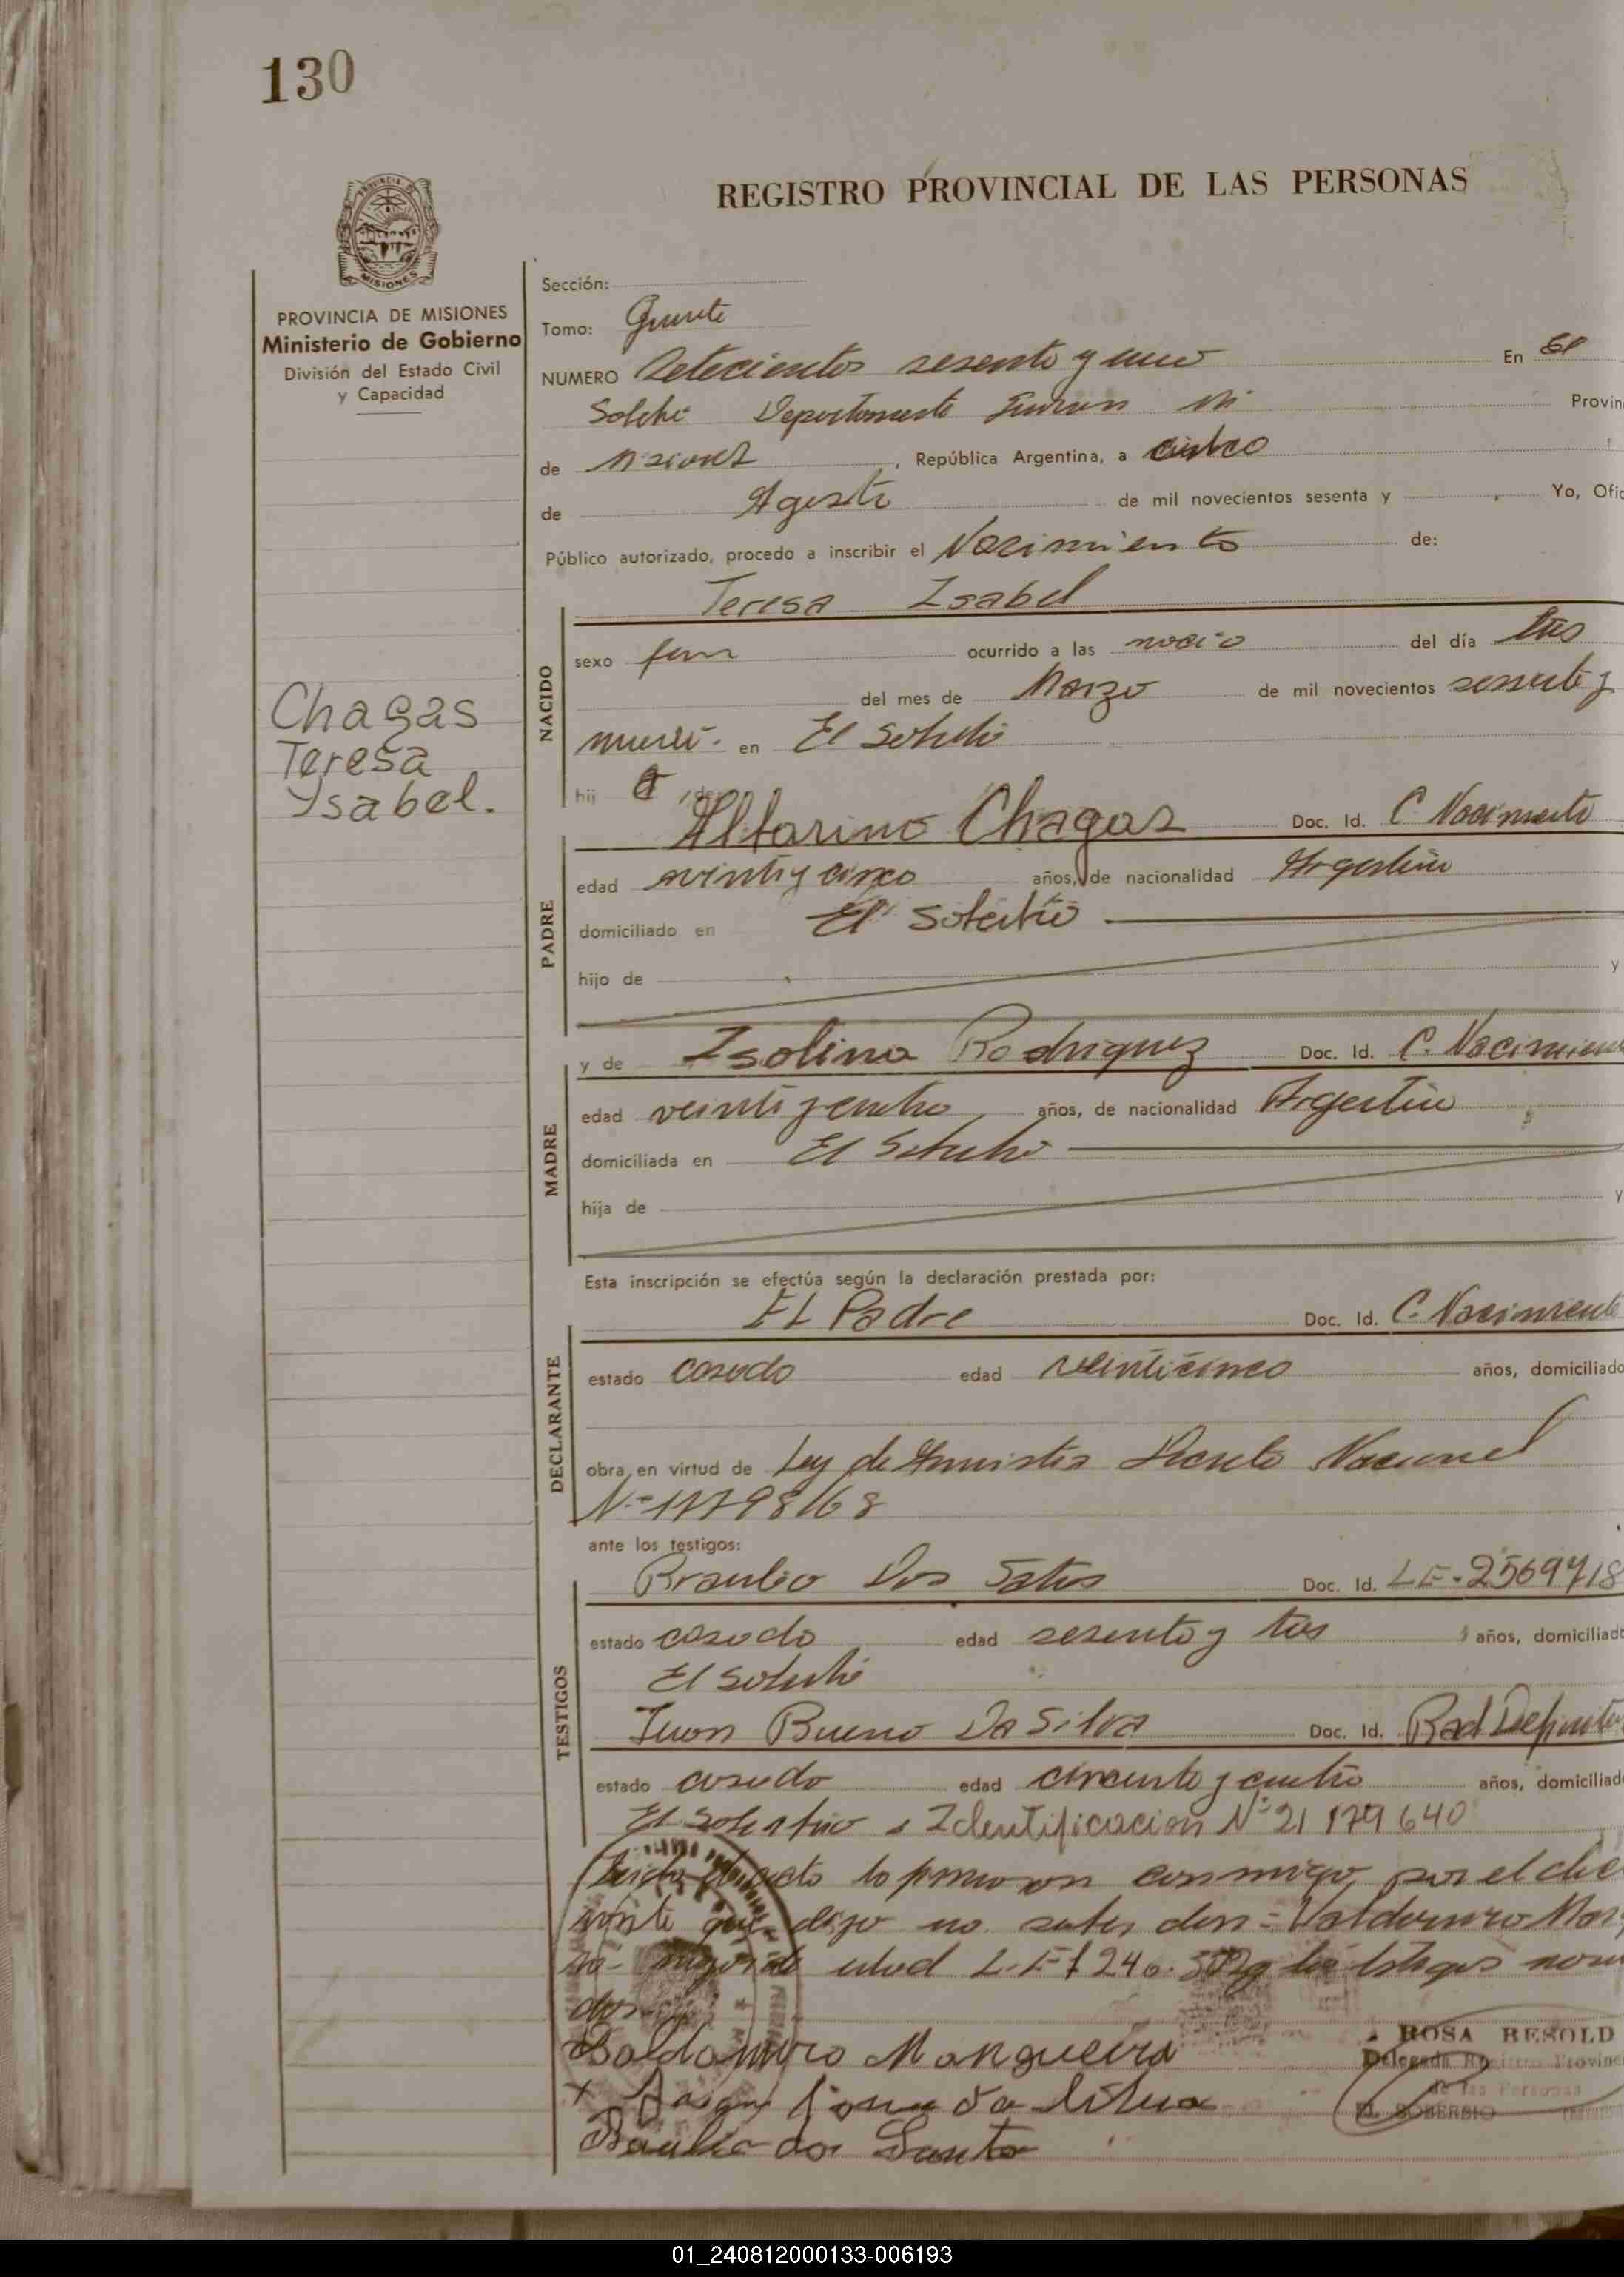 130
REGISTRO PROVINCIAL DE LAS PERSONAS
PROVINCIA DE MISIONES
MISIONES
PROVINCIA DE MISIONES
Ministerio de Gobierno
División del Estado Civil
y Capacidad
Chagas
Teresa
Ysabel.
Sección:
Tomo:
NUMERO Setecientos sesenta y uno En El
Departamento Provin
de Misiones, República Argentina, a cinco
de Agosto de mil novecientos sesenta y Yo, Ofic
Público autorizado, procedo a inscribir el Nacimiento de:
Teresa Isabel
NACIDO
sexo fem ocurrido a las del día tres
del mes de Marzo de mil novecientos sesenta y
nueve. en El Soberbio
hij a de
PADRE
Altarino Chagas Doc. Id. C. Nacimiento
edad veintiycinco años, de nacionalidad Argentino
domiciliado en El Soberbio
hijo de y
MADRE
y de Isolina Rodriguez Doc. Id. C. Nacimien
edad veintiycuatro años, de nacionalidad Argentina
domiciliada en El Soberbio
hija de y
Esta inscripción se efectúa según la declaración prestada por:
DECLARANTE
El Padre Doc. Id. C. Nacimiento
estado casado edad veinticinco años, domiciliado
obra en virtud de Ley de Amnistia Decreto Nacional
Nº 17798/68
ante los testigos:
TESTIGOS
Braulio Dos Santos Doc. Id. L.E. 2569718
estado casado edad sesenta y tres años, domiciliado
El Soberbio
Juan Bueno Da Silva Doc. Id. Rad Definitiv
estado casado edad cincuenta y cuatro años, domiciliado
El Soberbio Identificacion Nº 21 179 640
Leida el acta la firmaron conmigo, por el decla
rante que dijo no saber
mayor de edad L.E. y los testigos nom
dos
Baldomiro Mangueira
da Silva
Braulio dos Santo
ROSA RESOLD
Delegada Registro Provinc
de las Personas
EL SOBERBIO
01_240812000133-006193